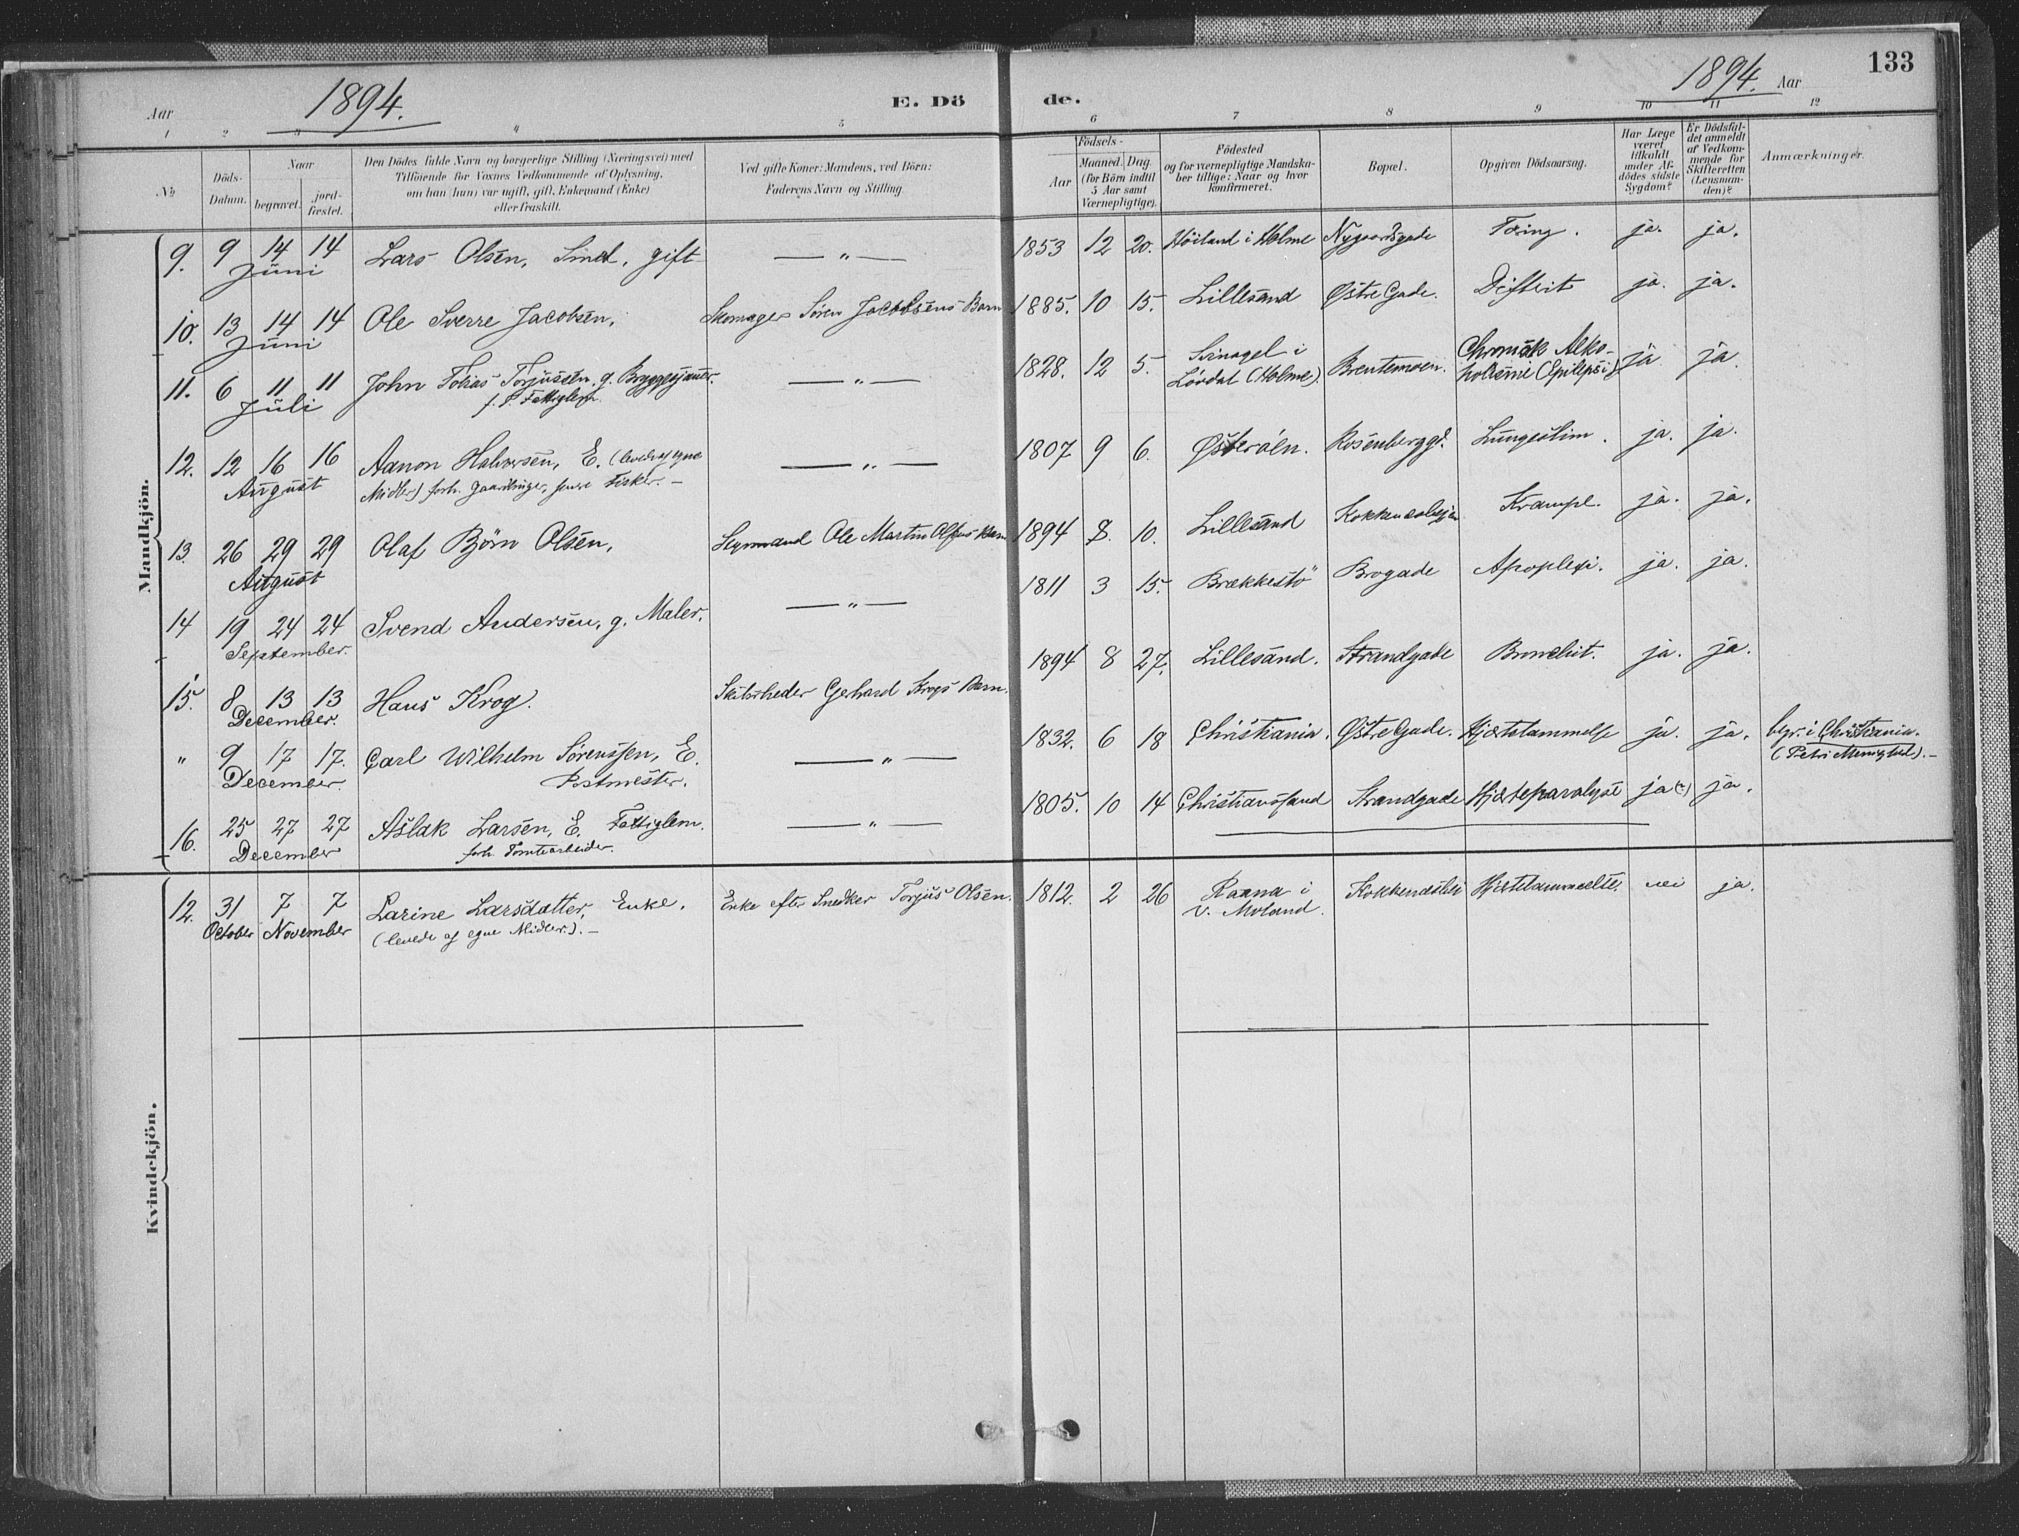 133
Aar 1894. E. Döde. 1894. Aar
1 2 3 4 5 6 7 8 9 10 11 12
No
Döds-Datum.
Naar
begravet.
jord-fæstet.
Den Dödes fulde Navn og borgerlige Stilling (Næringsvei) med
Tilföiende for Voxnes Vedkommende af Oplysning,
om han (hun) var ugift, gift, Enkemand (Enke)
eller fraskilt.
Ved gifte Koner: Mandens, ved Börn:
Faderens Navn og Stilling.
Födsels-
Aar
Maaned. Dag.
(for Börn indtil
5 Aar samt
Værnepligtige).
Födested
og for værnepligtige Mandska-
ber tillige: Naar og hvor
konfirmeret.
Bopæl.
Opgiven Dödsaarsag.
Har Læge
været
tilkaldt
under Af-
dödes sidste
Sygdom?
Er Dödsfal-
det anmeldt
af Vedkom-
mende for
Skifteretten
(Lensman-
den)?
Anmærkninger.
Mandkjön.
9. 9 14 14 Lars Olsen, Smed, gift — " — 1853 12 20. Höiland i Holme Nygaardsgade Tæring. ja. ja.
Juni
10. 13 14 14 Ole Sverre Jacobsen. Skomager Søren Jacobsens Barn 1885. 10 15. Lillesand Østre Gade. Difterit ja. ja.
Juni
11. 6 11 11 John Tobias Torjusen, g. Bryggesjauer. — " — 1828. 12 5. i Brentemoen. Chronisk Alko- ja ja.
Juli f. T. Fattiglem. Løvdal (Holme). holisme (Epilepsi)
12. 12 16 16 Aanon Halvorsen, E. (levede af egne — " — 1807 9 6. Østerøen. Rosenberggd. Lungeslim. ja. ja.
August Midler) forh. Gaardbruger, senere Fisker. —
13. 26 29 29 Olaf Björn Olsen. Styrmand Ole Martin Olsens Barn 1894 8. 10. Lillesand Krampe. ja. ja.
August
14 19 24 24 Svend Andersen, g. Maler. — " — 1811 3 15. Brækkestö Brogade Apoplexi. ja. ja.
September.
15. 8 13 13 Hans Krog. Skibsrheder Gerhard Krogs Barn. 1894 8 27. Lillesand. Strandgade Bronchit. ja. ja.
December.
" 9 17 17. Carl Wilhelm Sørenssen, E. — " — 1832. 6 18 Christiania. Østre Gade. Hjertelammelse ja. ja. begr. i Christiania.
December. Postmester.
16. 25 27 27 Aslak Larsen, E. Fattiglem. — " — 1805. 10 14 Christianssand Strandgade Hjerteparalyse ja ja.
December forh. Tomtearbeider.
Kvindekjön.
12. 31 7 7 Larine Larsdatter, Enke. Enke efter Snedker Torjus Olsen. 1812. 2 26 i Hjertelammelse nei ja.
October November (levede af egne Midler). — V. Moland.